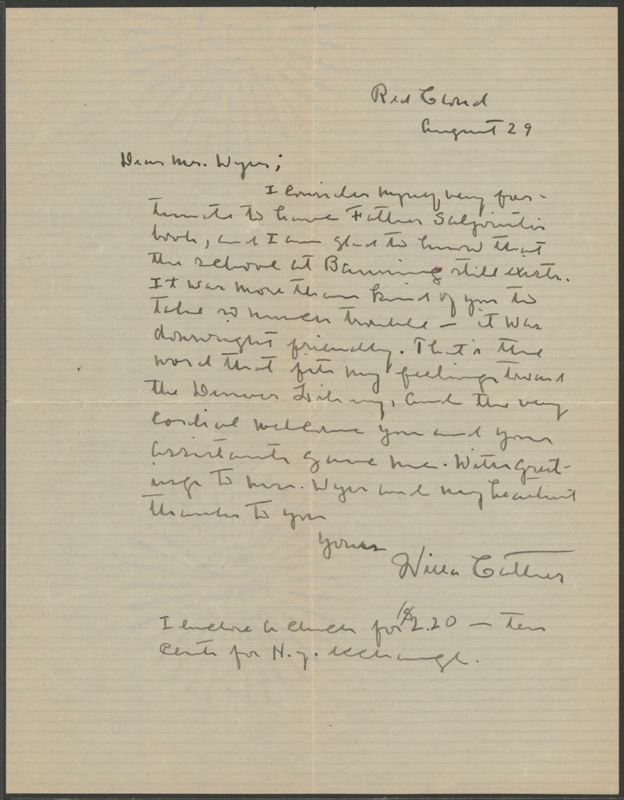 Red Cloud
August 29
Dear Mr. Wyer;
I consider myself very for-
tunate to have Father Salpointe's
book, and I am glad to know that
the school at Banning still exists.
It was more than kind of you to
take so much trouble — it was
downright friendly. That's the
word that fits my feelings toward
the Denver Library, and the very
cordial welcome you and your
assistants gave me. With greet-
ings to Mrs. Wyer and my heartiest
thanks to you
Yours
Willa Cather
I enclose a check for $2.20 — ten
cents for N.Y. exchange.